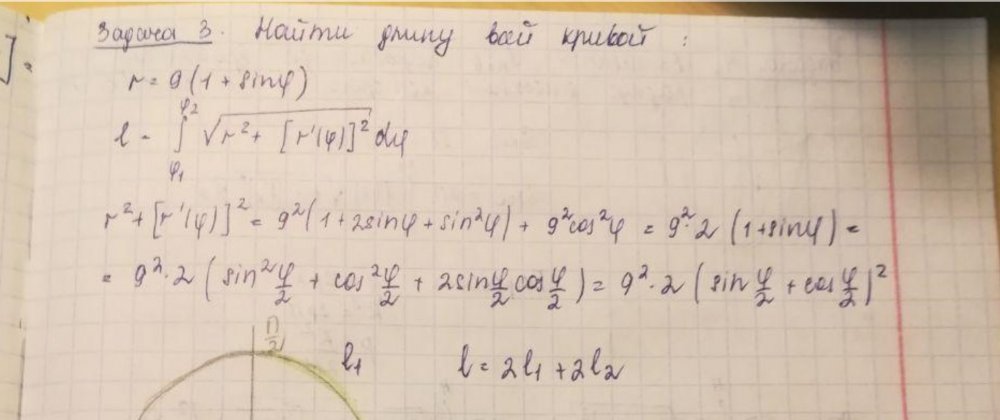 ] =
Задача 3. Найти длину всей кривой :
r = 9(1 + sinφ)
l = ∫_{φ1}^{φ2} √(r² + [r'(φ)]²) dφ
r² + [r'(φ)]² = 9²(1 + 2sinφ + sin²φ) + 9²cos²φ = 9²·2 (1+sinφ) =
= 9²·2 (sin² φ/2 + cos² φ/2 + 2sin φ/2 cos φ/2) = 9²·2 (sin φ/2 + cos φ/2)²
π/2
l₁ l = 2l₁ + 2l₂